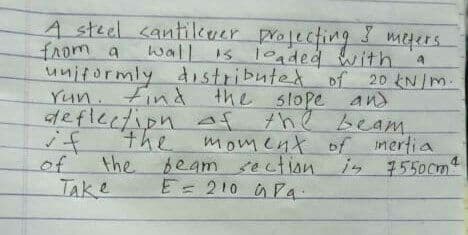 A steel cantilever projecting 3 meters
from a wall is loaded with a
uniformly distributed of 20 kN/m.
run. Find the slope and
deflection of the beam
if the moment of inertia
of the beam section is 7550cm⁴
Take E = 210 GPa.